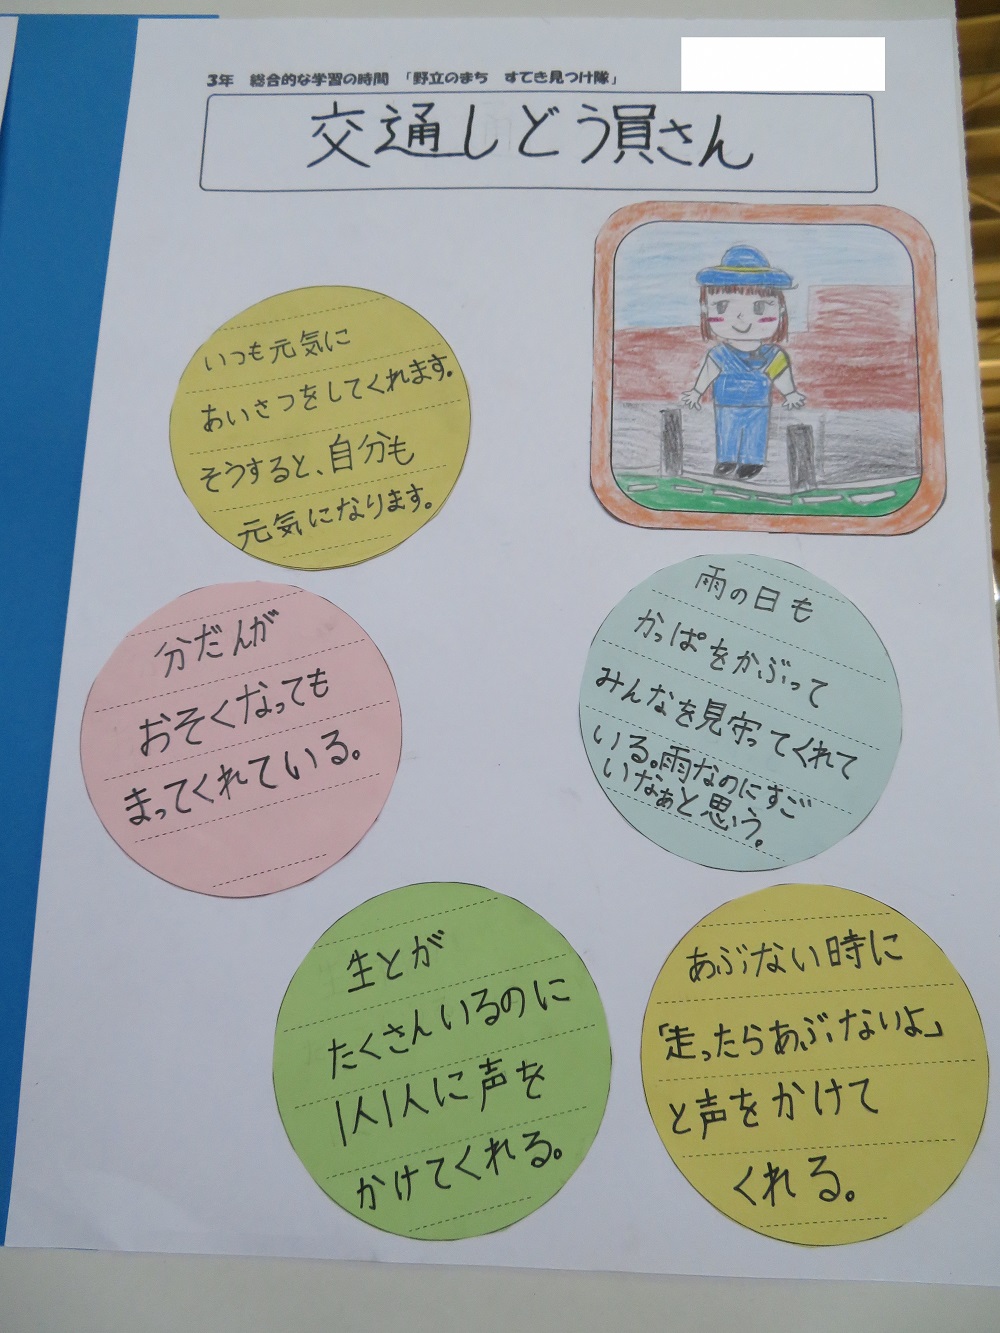 3年 総合的な学習の時間 「野立のまち すてき見つけ隊」
交通しどう員さん
いつも元気に
あいさつをしてくれます。
そうすると、自分も
元気になります。
分だんが
おそくなっても
まってくれている。
雨の日も
かっぱをかぶって
みんなを見守ってくれて
いる。雨なのにすご
いなぁと思う。
生とが
たくさんいるのに
1人1人に声を
かけてくれる。
あぶない時に
「走ったらあぶないよ」
と声をかけて
くれる。